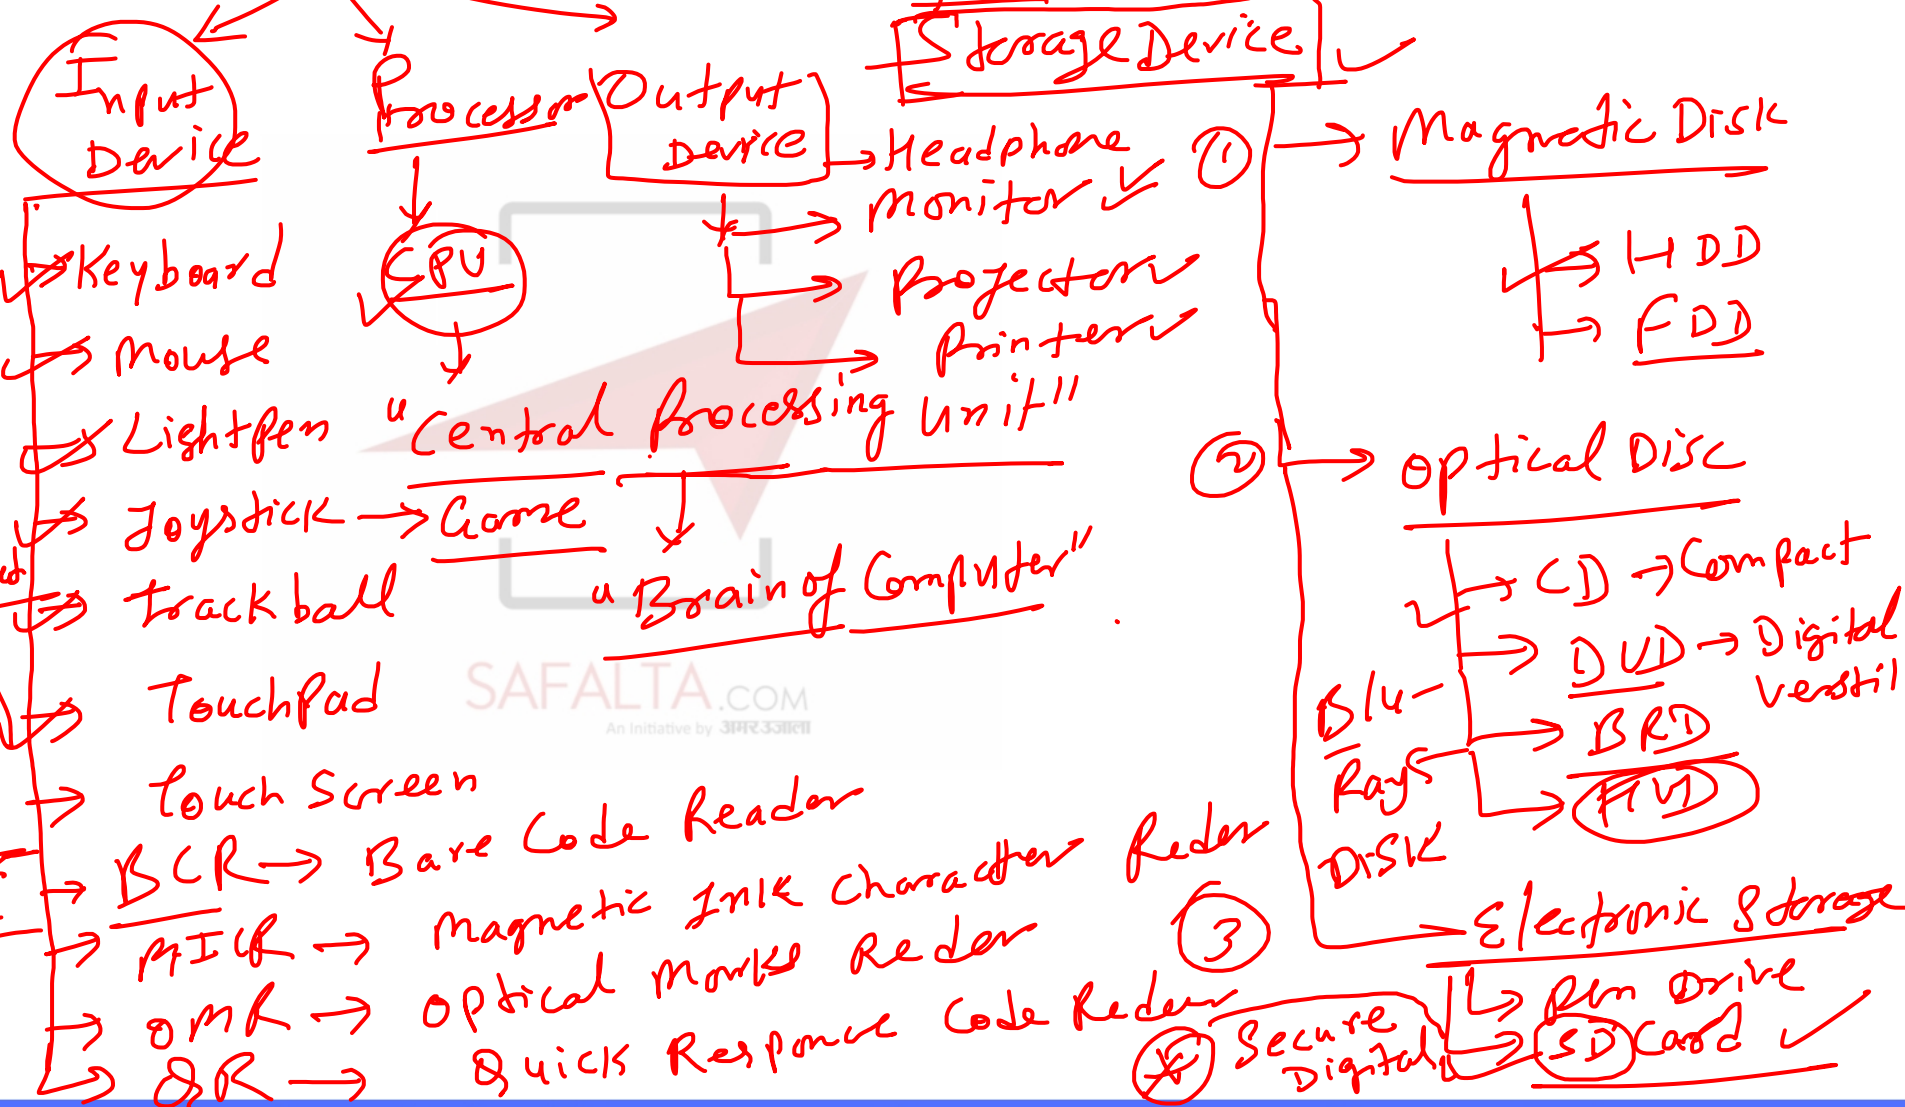 Input
Device
Keyboard
Mouse
Lightpen
Joystick → Game
Trackball
TouchPad
Touch Screen
BCR → Bare Code Reader
MICR → Magnetic Ink Character Reder
OMR → Optical Marks Reder
QR → Quick Responce Code Reder
Processor
CPU
"Central Processing Unit"
"Brain of Computer"
Output
Device
Headphone
Monitor
Projector
Printer
Storage Device
1 → Magnetic Disk
HDD
FDD
2 → Optical Disc
CD → Compact
DVD → Digital
Verstil
BRD
Blu-
Rays
DISK
HVD
3
Electronic Storage
Pen Drive
SD Card
Secure
Digital
SAFALTA.COM
An Initiative by अमर उजाला